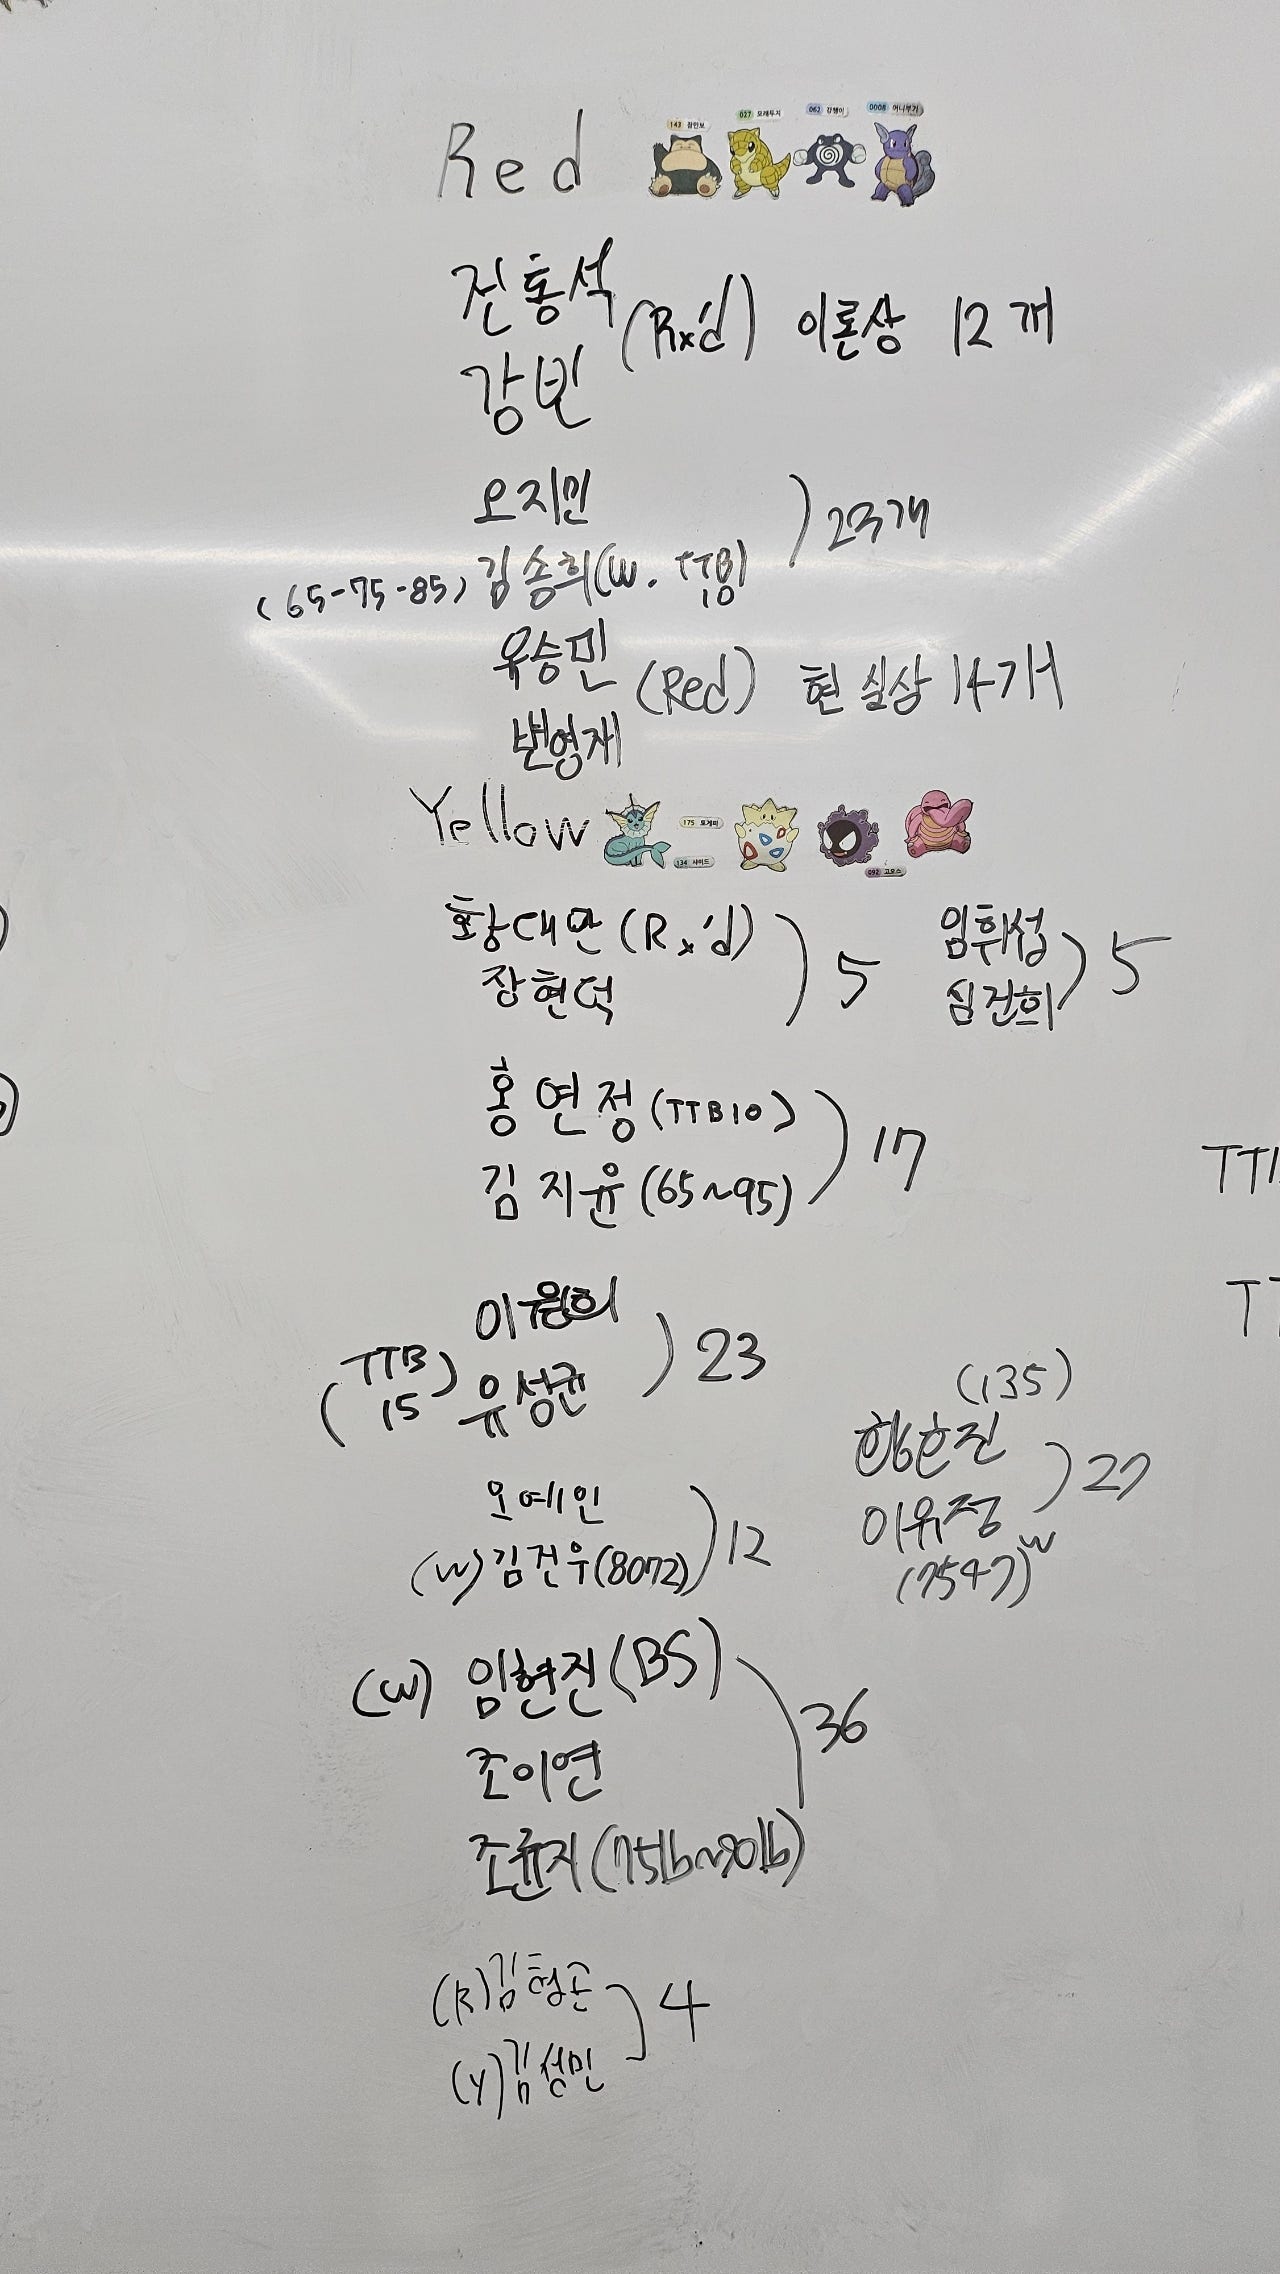 Red
143 잠만보 027 모래두지 062 강챙이 0008 어니부기
전홍석
강빈
(Rx'd) 이론상 12개
오지민
(65-75-85) 김송희 (W. TTB 10)
23개
유승민
변영재
(Red) 현실상 14개
Yellow
175 토게피
134 샤미드
092 고오스
황대만 (Rx'd)
장현덕
5
임휘섭
심건희
5
홍연정 (TTB10)
김지윤 (65~95)
17
이원희
(TTB 15) 유성균
23
오예인
(W) 김건우 (8072)
12
(135)
이유정 W
(7547)
27
(W) 임현진 (BS)
조이연
조윤지 (75lb~90lb)
36
(R) 김형준
(Y) 김성민
4